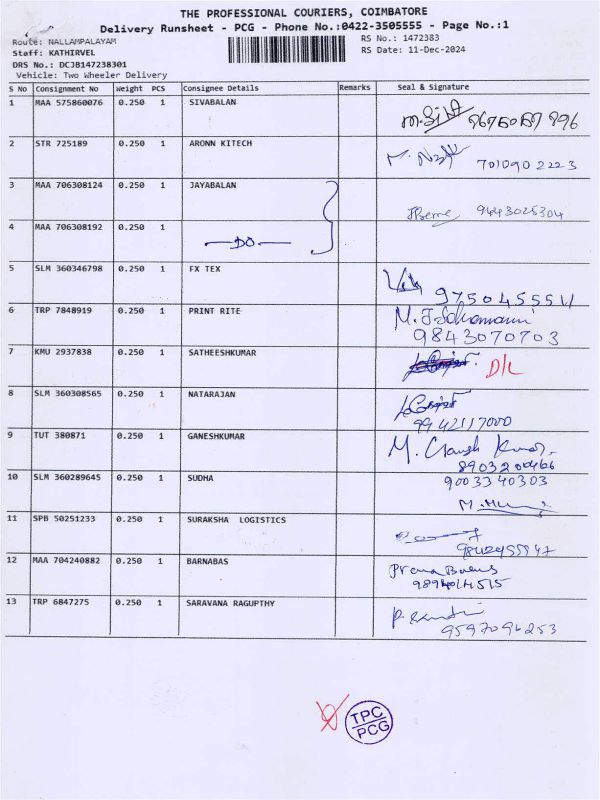 THE PROFESSIONAL COURIERS, COIMBATORE
Delivery Runsheet - PCG - Phone No.:0422-3505555 - Page No.:1
Route: NALLAMPALAYAM
RS No.: 1472383
Staff: KATHIRVEL
RS Date: 11-Dec-2024
DRS No.: DCJB147238301
Vehicle: Two Wheeler Delivery
S No Consignment No Weight PCS Consignee Details Remarks Seal & Signature
1 MAA 575860076 0.250 1 SIVABALAN
2 STR 725189 0.250 1 ARONN KITECH 7010902223
3 MAA 706308124 0.250 1 JAYABALAN 9443025304
4 MAA 706308192 0.250 1 DO
5 SLM 360346798 0.250 1 FX TEX
6 TRP 7848919 0.250 1 PRINT RITE 9843070703
7 KMU 2937838 0.250 1 SATHEESHKUMAR D/L
8 SLM 360308565 0.250 1 NATARAJAN 9942117000
9 TUT 380871 0.250 1 GANESHKUMAR 8903200466
10 SLM 360289645 0.250 1 SUDHA 9003340303
11 SPB 50251233 0.250 1 SURAKSHA LOGISTICS
12 MAA 704240882 0.250 1 BARNABAS
13 TRP 6847275 0.250 1 SARAVANA RAGUPTHY
TPC
PCG